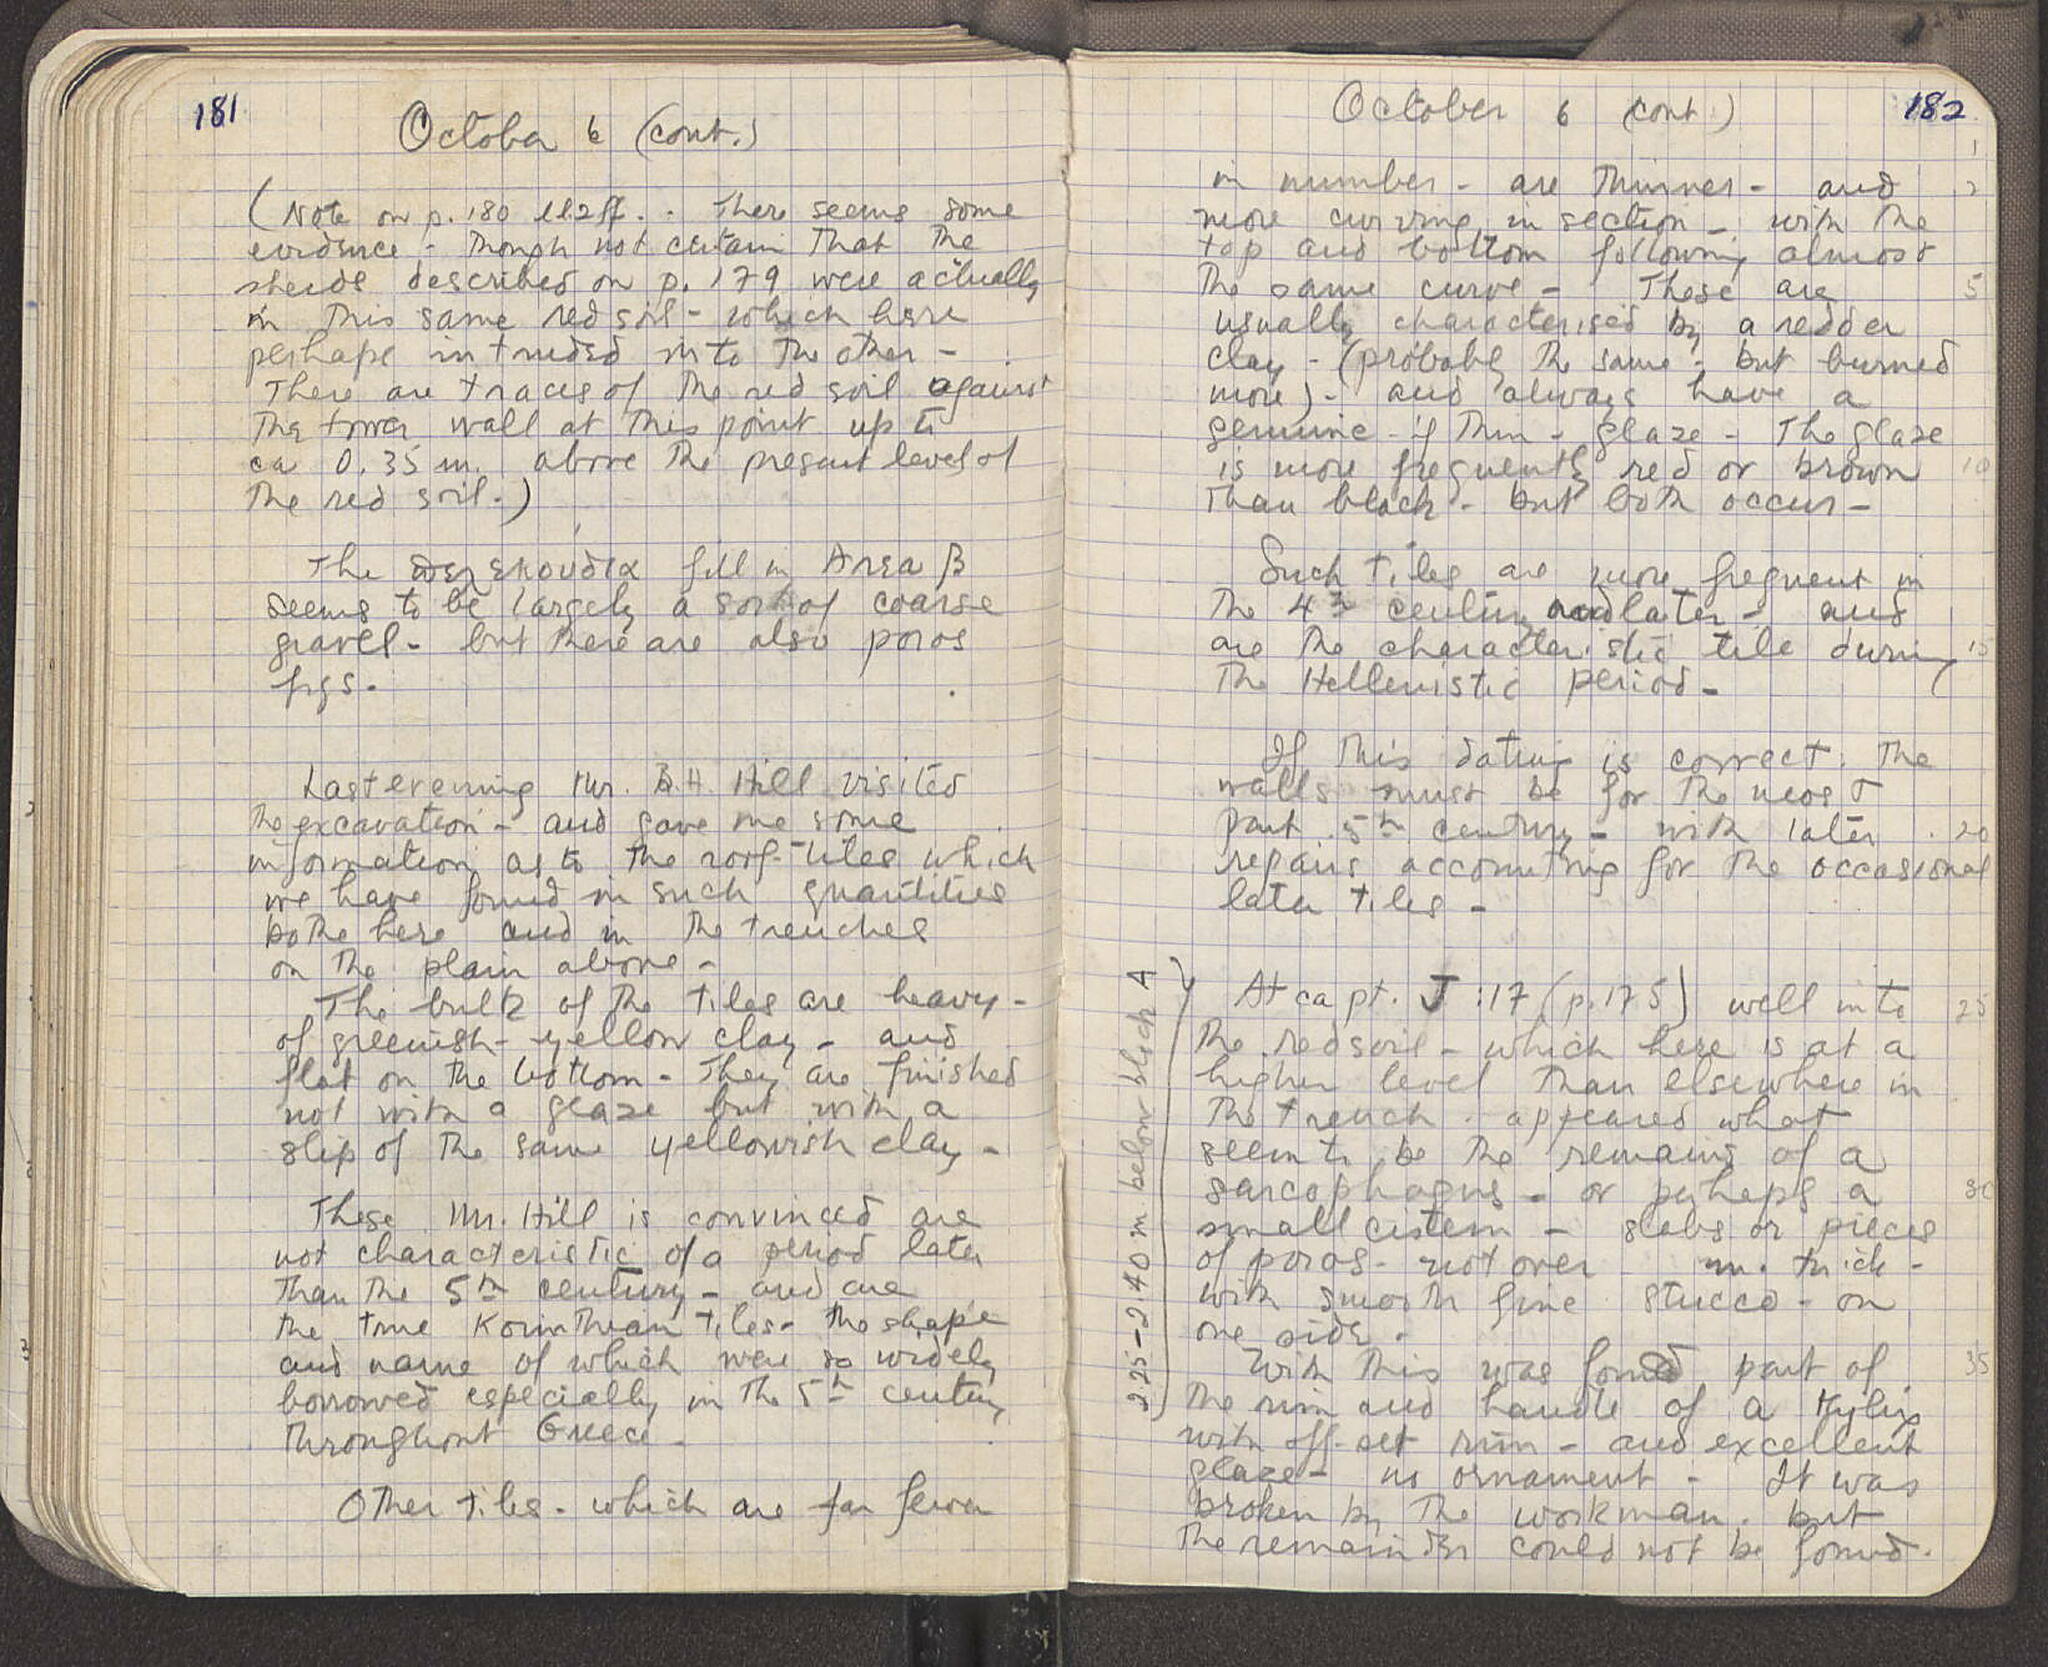 181
October 6 (cont.)
(Note on p. 180 ll 2 ff. . There seems some
evidence - though not certain that the
sherds described on p. 179 were actually
in this same red soil - which here
perhaps intruded into the other -
There are traces of the red soil against
the tower wall at this point up to
ca 0.35 m. above the present level of
the red soil.)
The fill in Area β
seems to be largely a sort of coarse
gravel - but there are also poros
frgs.
Last evening Mr. B.H. Hill visited
the excavation - and gave me some
information as to the roof-tiles which
we have found in such quantities
bothe here and in the trenches
on the plain above -
The bulk of the tiles are heavy -
of greenish-yellow clay - and
flat on the bottom - They are finished
not with a glaze but with a
slip of the same yellowish clay -
These Mr. Hill is convinced are
not characteristic of a period later
than the 5th century - and are
the true Korinthian tiles - the shape
and name of which were so widely
borrowed especially in the 5th century
throughout Greece -
Other tiles - which are far fewer
182
October 6 (cont.)
1
in number - are thinner - and 2
more curving in section - with the
top and bottom following almost
the same curve - These are 5
usually characterised by a redder
clay - (probably the same - but burned
more) - and always have a
genuine - if thin - glaze - The glaze
is more frequently red or brown 10
than black - but both occur -
Such tiles are more frequent in
the 4th century and later - and
are the characteristic tile during 15
the Hellenistic period -
If this dating is correct. the
walls must be for the most
part 5th century - with later 20
repairs accounting for the occasional
later tiles -
2.25-2.40 m below block A
At ca pt. J:17 (p. 175) well into 25
the red soil - which here is at a
higher level than elsewhere in
the trench - appeared what
seem to be the remains of a
sarcophagus - or perhaps a 30
small cistern - slabs or pieces
of poros - not over m. thick -
with smooth fine stucco - on
one side -
With this was found part of 35
the rim and handle of a Kylix
with off-set rim - and excellent
glaze - no ornament - It was
broken by the workman - but
the remainder could not be found.